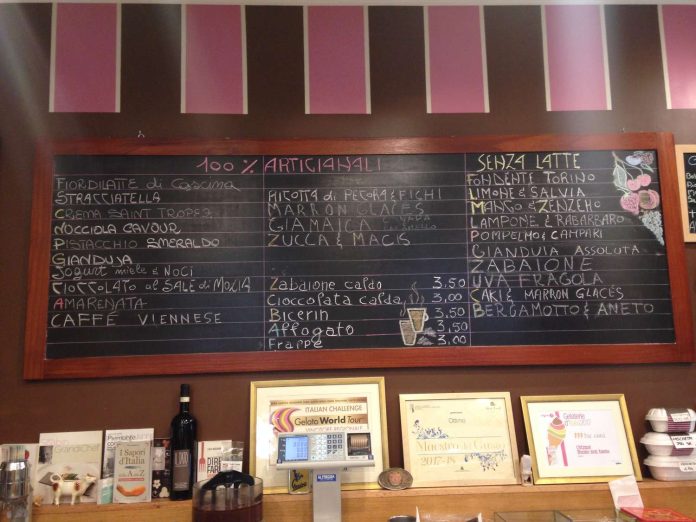 100% ARTIGIANALI
FIORDILATTE di Cascina
STRACCIATELLA
CREMA SAINT TROPEZ
NOCCIOLA CAVOUR
PISTACCHIO SMERALDO
GIANDUJA
Yogurt miele & NOCI
CIOCCOLATO al SALE di MOZIA
AMARENATA
CAFFÉ VIENNESE
RICOTTA di PECORA & FICHI
MARRON GLACÉS
GIAMAICA
ZUCCA & MACIS
Zabaione caldo 3,50
Cioccolata calda 3,00
Bicerin 3,50
Affogato 3,50
Frappè 3,00
SENZA LATTE
FONDENTE TORINO
LIMONE & SALVIA
MANGO & ZENZERO
LAMPONE & RABARBARO
POMPELMO & CAMPARI
GIANDUIA ASSOLUTA
ZABAIONE
UVA FRAGOLA
SAKE & MARRON GLACÉS
BERGAMOTTO & ANETO
GrandiChef
Piemonte
I Sapori
d'Italia
DIRE
FARE
ITALIAN CHALLENGE
Gelato World Tour
Ottimo
Maestro del Gusto
2017-18
Gelaterie
d'Italia